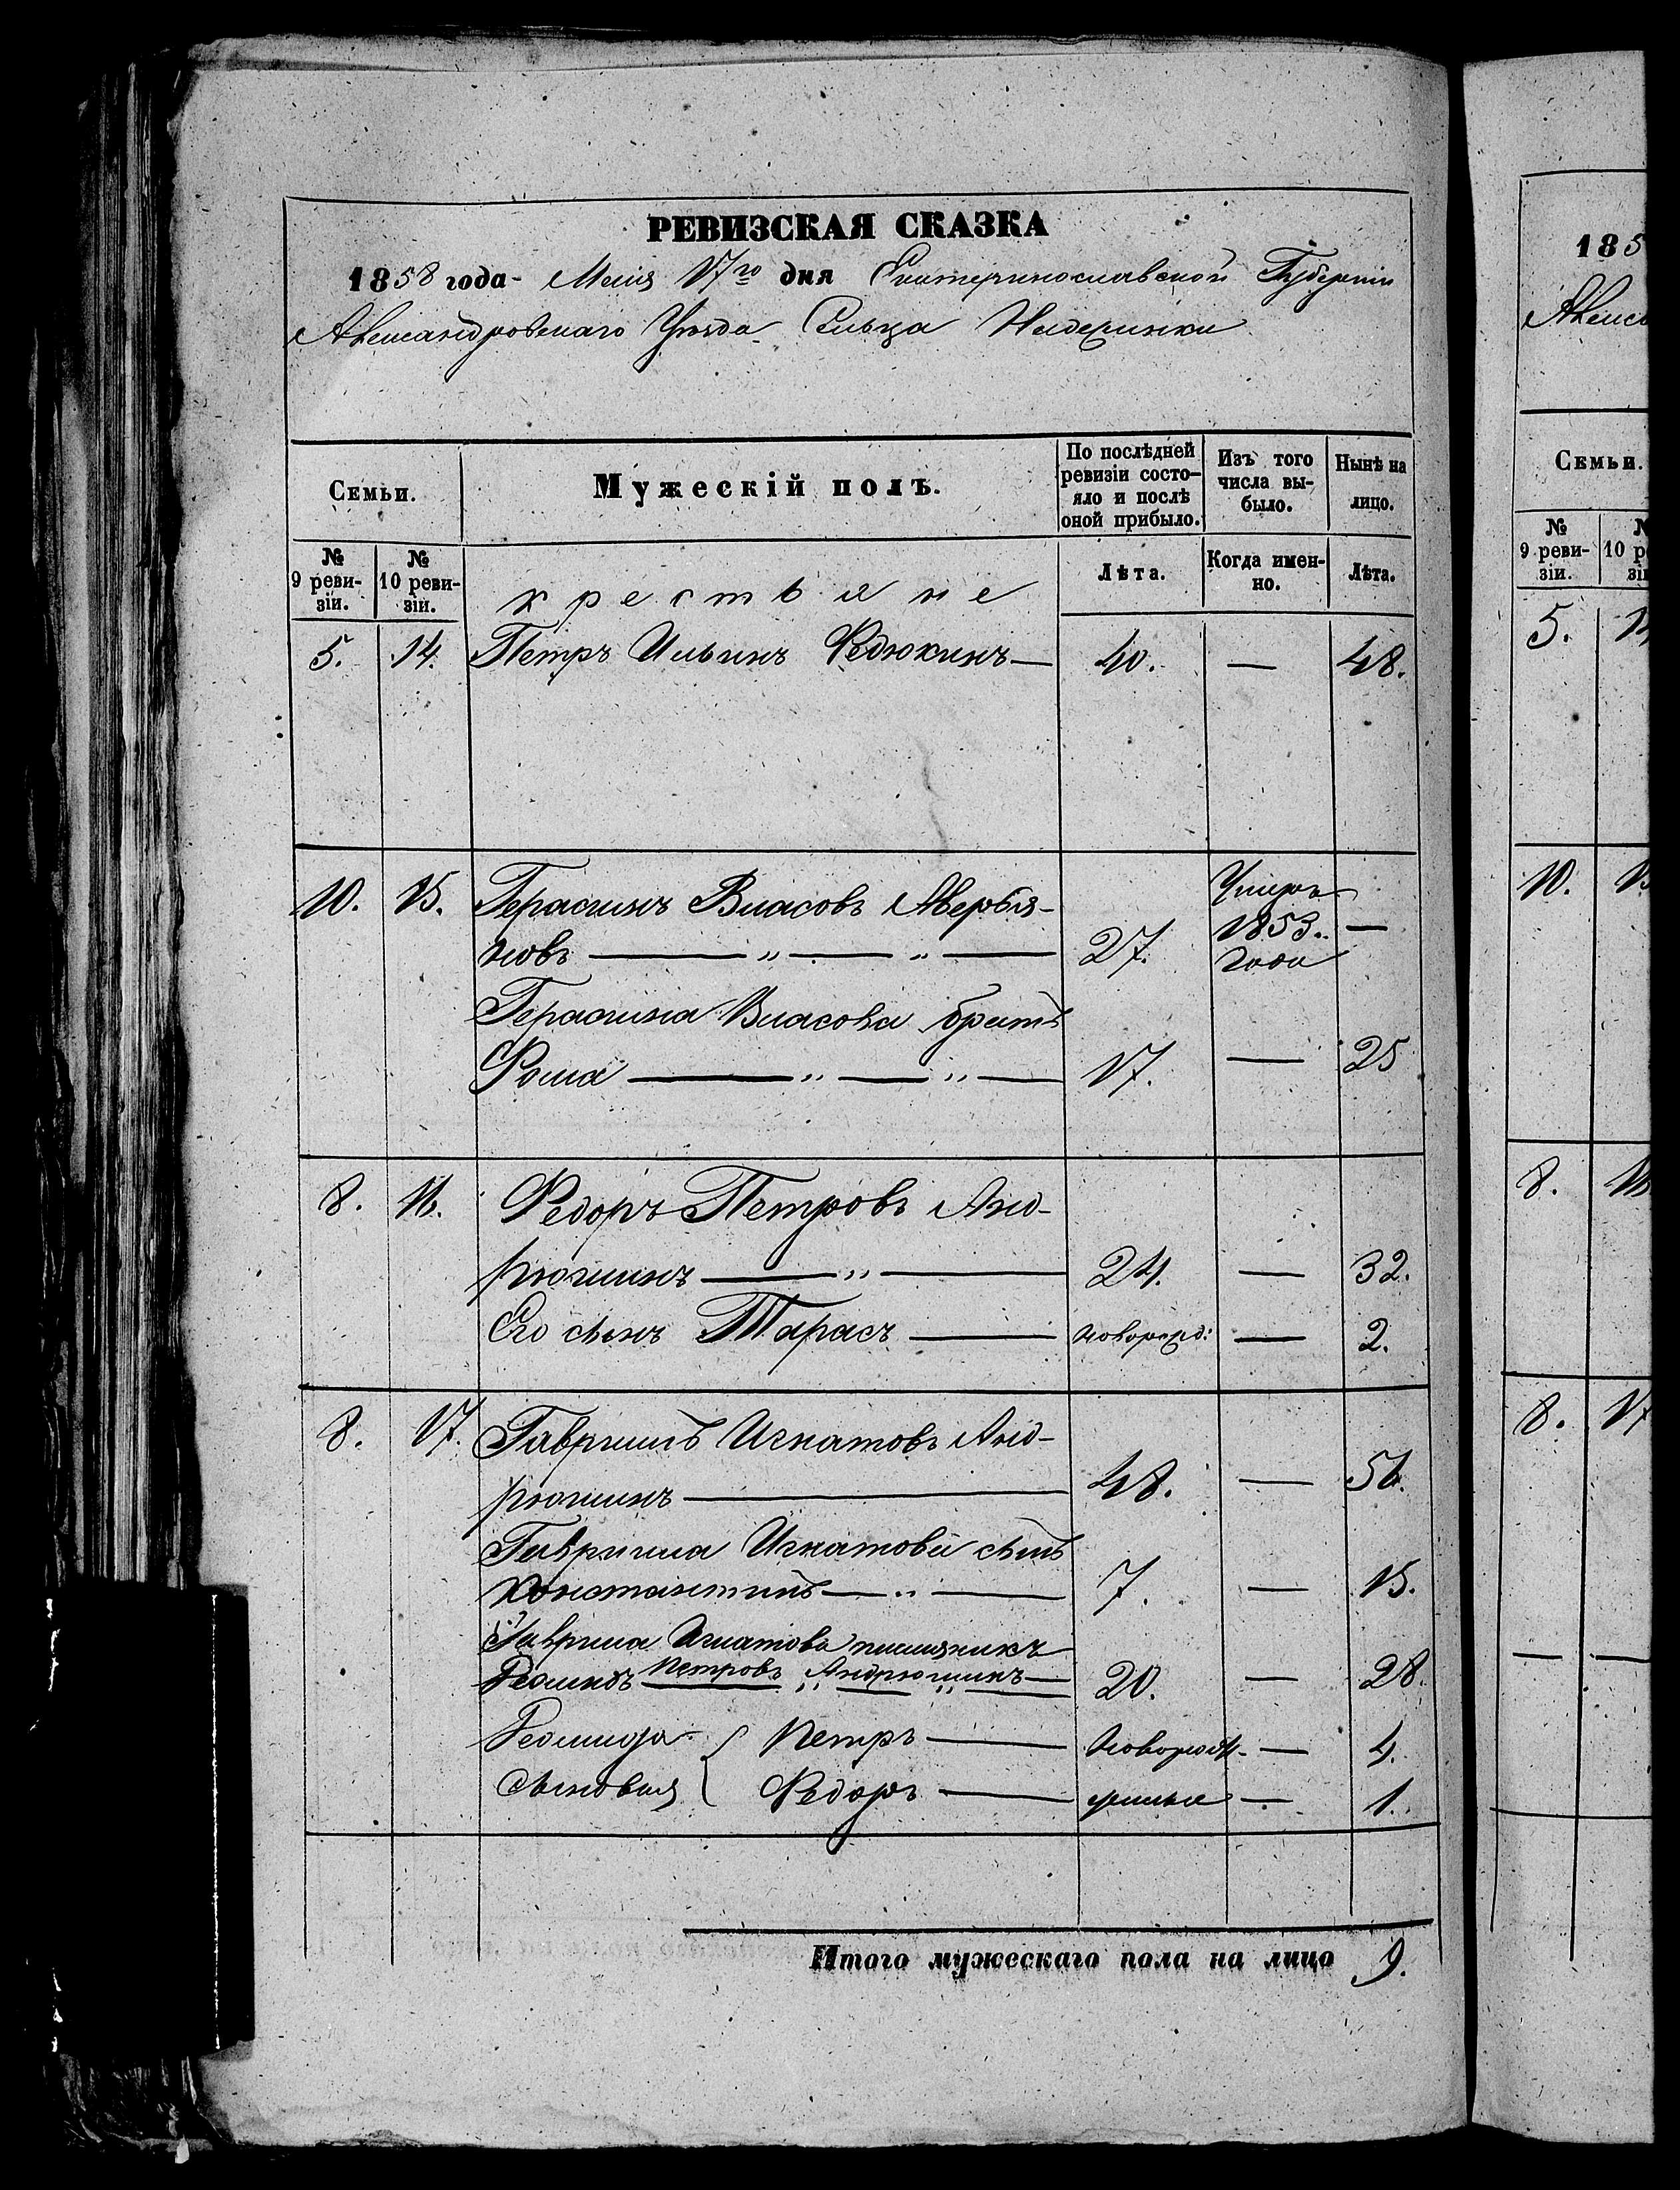 РЕВИЗСКАЯ СКАЗКА
1858 года Маия 17го дня Екатеринославской Губернии
Александровскаго Уѣзда Сельца
Семьи.
Мужескій полъ.
По послѣдней ревизіи состо-
яло и послѣ оной прибыло.
Изъ того числа вы-
было.
Нынѣ на лицо.
№ 9 реви-
зіи.
№ 10 реви-
зіи.
крестьяне
Лѣта.
Когда имен-
но.
Лѣта.
5. 14. Петръ Ильинъ Федюкинъ — 40. — 48.
10. 15. Герасимъ Власовъ Аверья-
новъ — „ — „ — 27. Умеръ 1853. года —
Герасима Власова братъ
Фома — „ — „ — 17. — 25
8. 16. Федоръ Петровъ Анд-
рюшинъ — „ — 24. — 32.
Его сынъ Тарасъ — новорожд: — 2.
8. 17. Гаврилъ Игнатовъ Анд-
рюшинъ — 48. — 56.
Гаврила Игнатова сынъ
Константинъ — „ — 7. — 15.
Гаврила Игнатова племяникъ
Петровъ Андрюшинъ — 20. — 28.
Петръ — новорож- — 4.
Сыновья Федоръ — — 1.
Итого мужескаго пола на лицо 9.
185
Семьи.
№ 9 реви-
зіи.
5.
10.
8.
8. 17